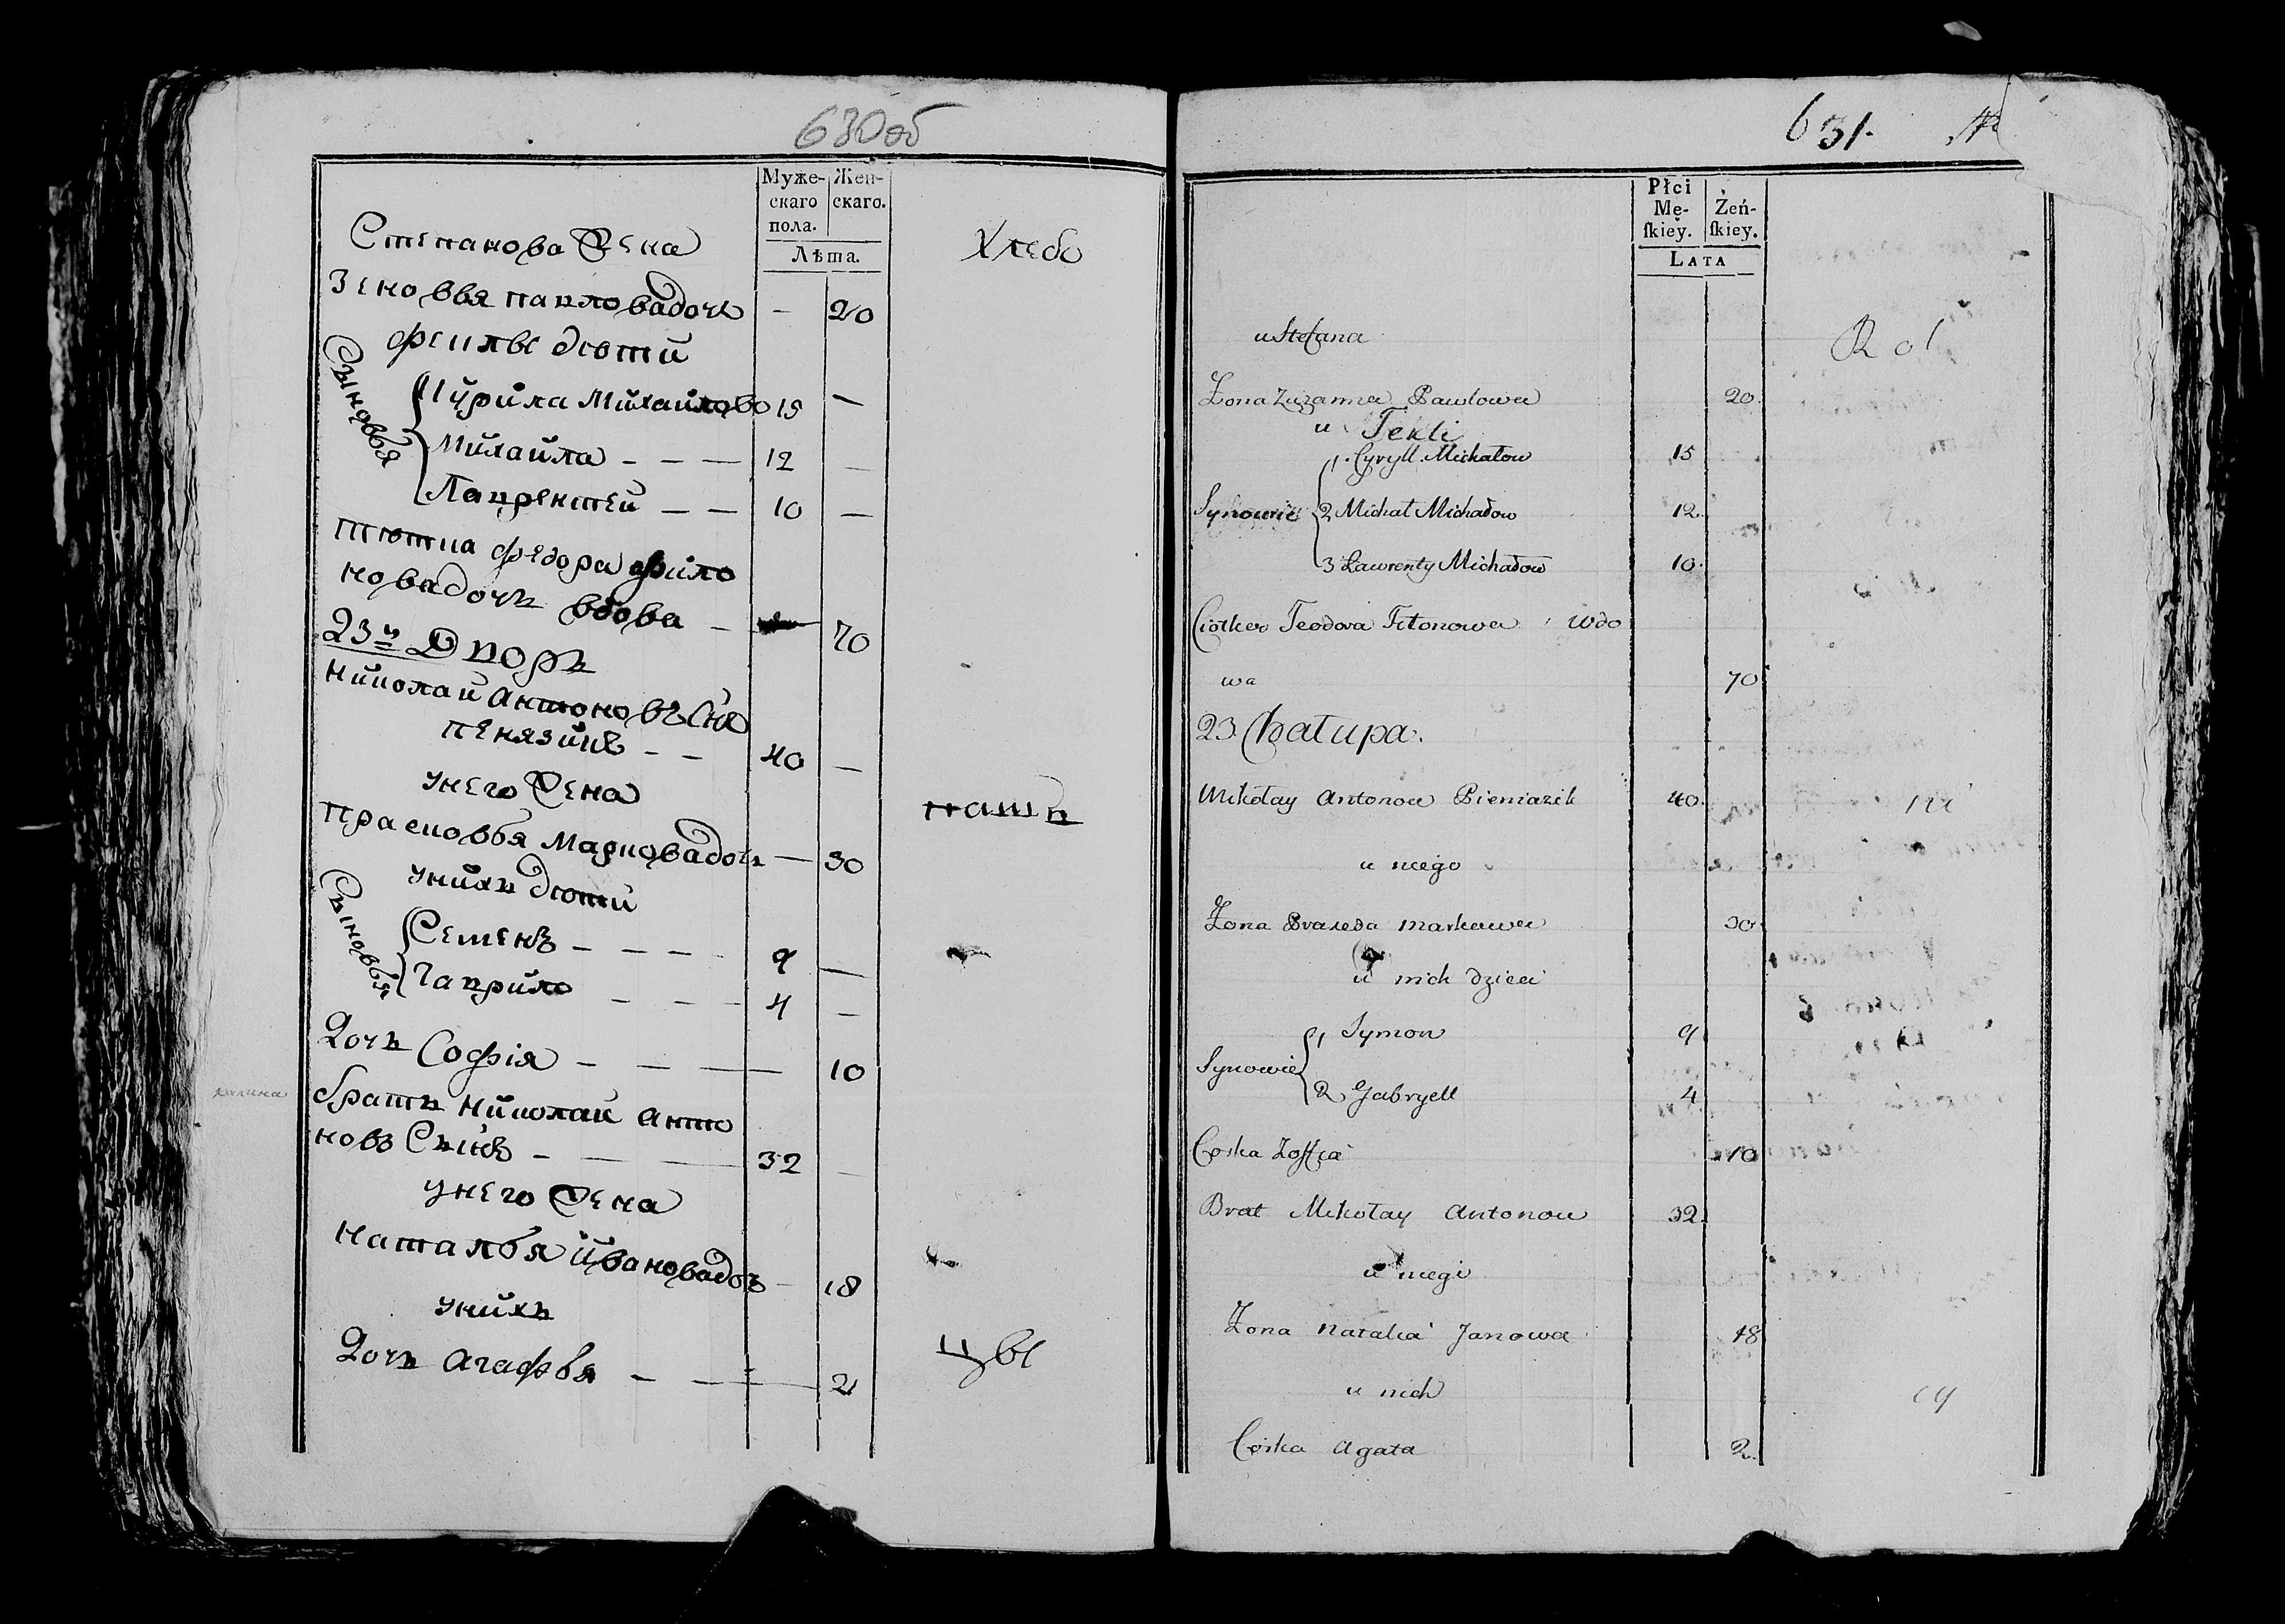 630об
Муже-
скаго
пола.
Жен-
скаго.
Лѣта.
Степанова Жена
Хлебо
Зеновья павловадочь
—
20
феклы дѣти
Сыновья
Курила Михайлово
15
—
Михайла — — —
12
—
Лаврентей — —
10
—
тютка федора фило
новадочь вдова —
70
23й Дворъ
Николай Антоновъ Снъ
пенязикъ — —
40
—
унего Жена
прасковья Марковадочь
—
30
пашъ
унихъ дѣти
Сыновья
Семенъ — — — —
9
—
Гаврило — — —
4
—
Дочь Софія — — — —
10
калина
братъ Николай Анто
новъ Сынъ — — —
32
—
унего Жена
наталья Ивановадочь
—
18
унихъ
Дочь Агафья — — —
2
цы
631.
Płci
Mę-
ſkiey.
Żeń-
ſkiey.
LATA
u Stefana
Rol
Żona Zuzanna Pawłowa
20
u Tekli
1. Cyryll Michałow
15
Synowie
2 Michał Michałow
12
3 Ławrenty Michałow
10
Ciotka Teodora Filonowa Wdo
wa
70
23. Chałupa.
Mikołay Antonow Pieniazik
40
ni
u niego
Żona Praxeda Markowa
30
u nich dzieci
1 Symon
9
Synowie
2 Gabryell
4
Corka Zoffia
10
Brat Mikołay Antonow
32
u niego
Żona Natalia Janowa
18
u nich
cy
Corka Agata
2